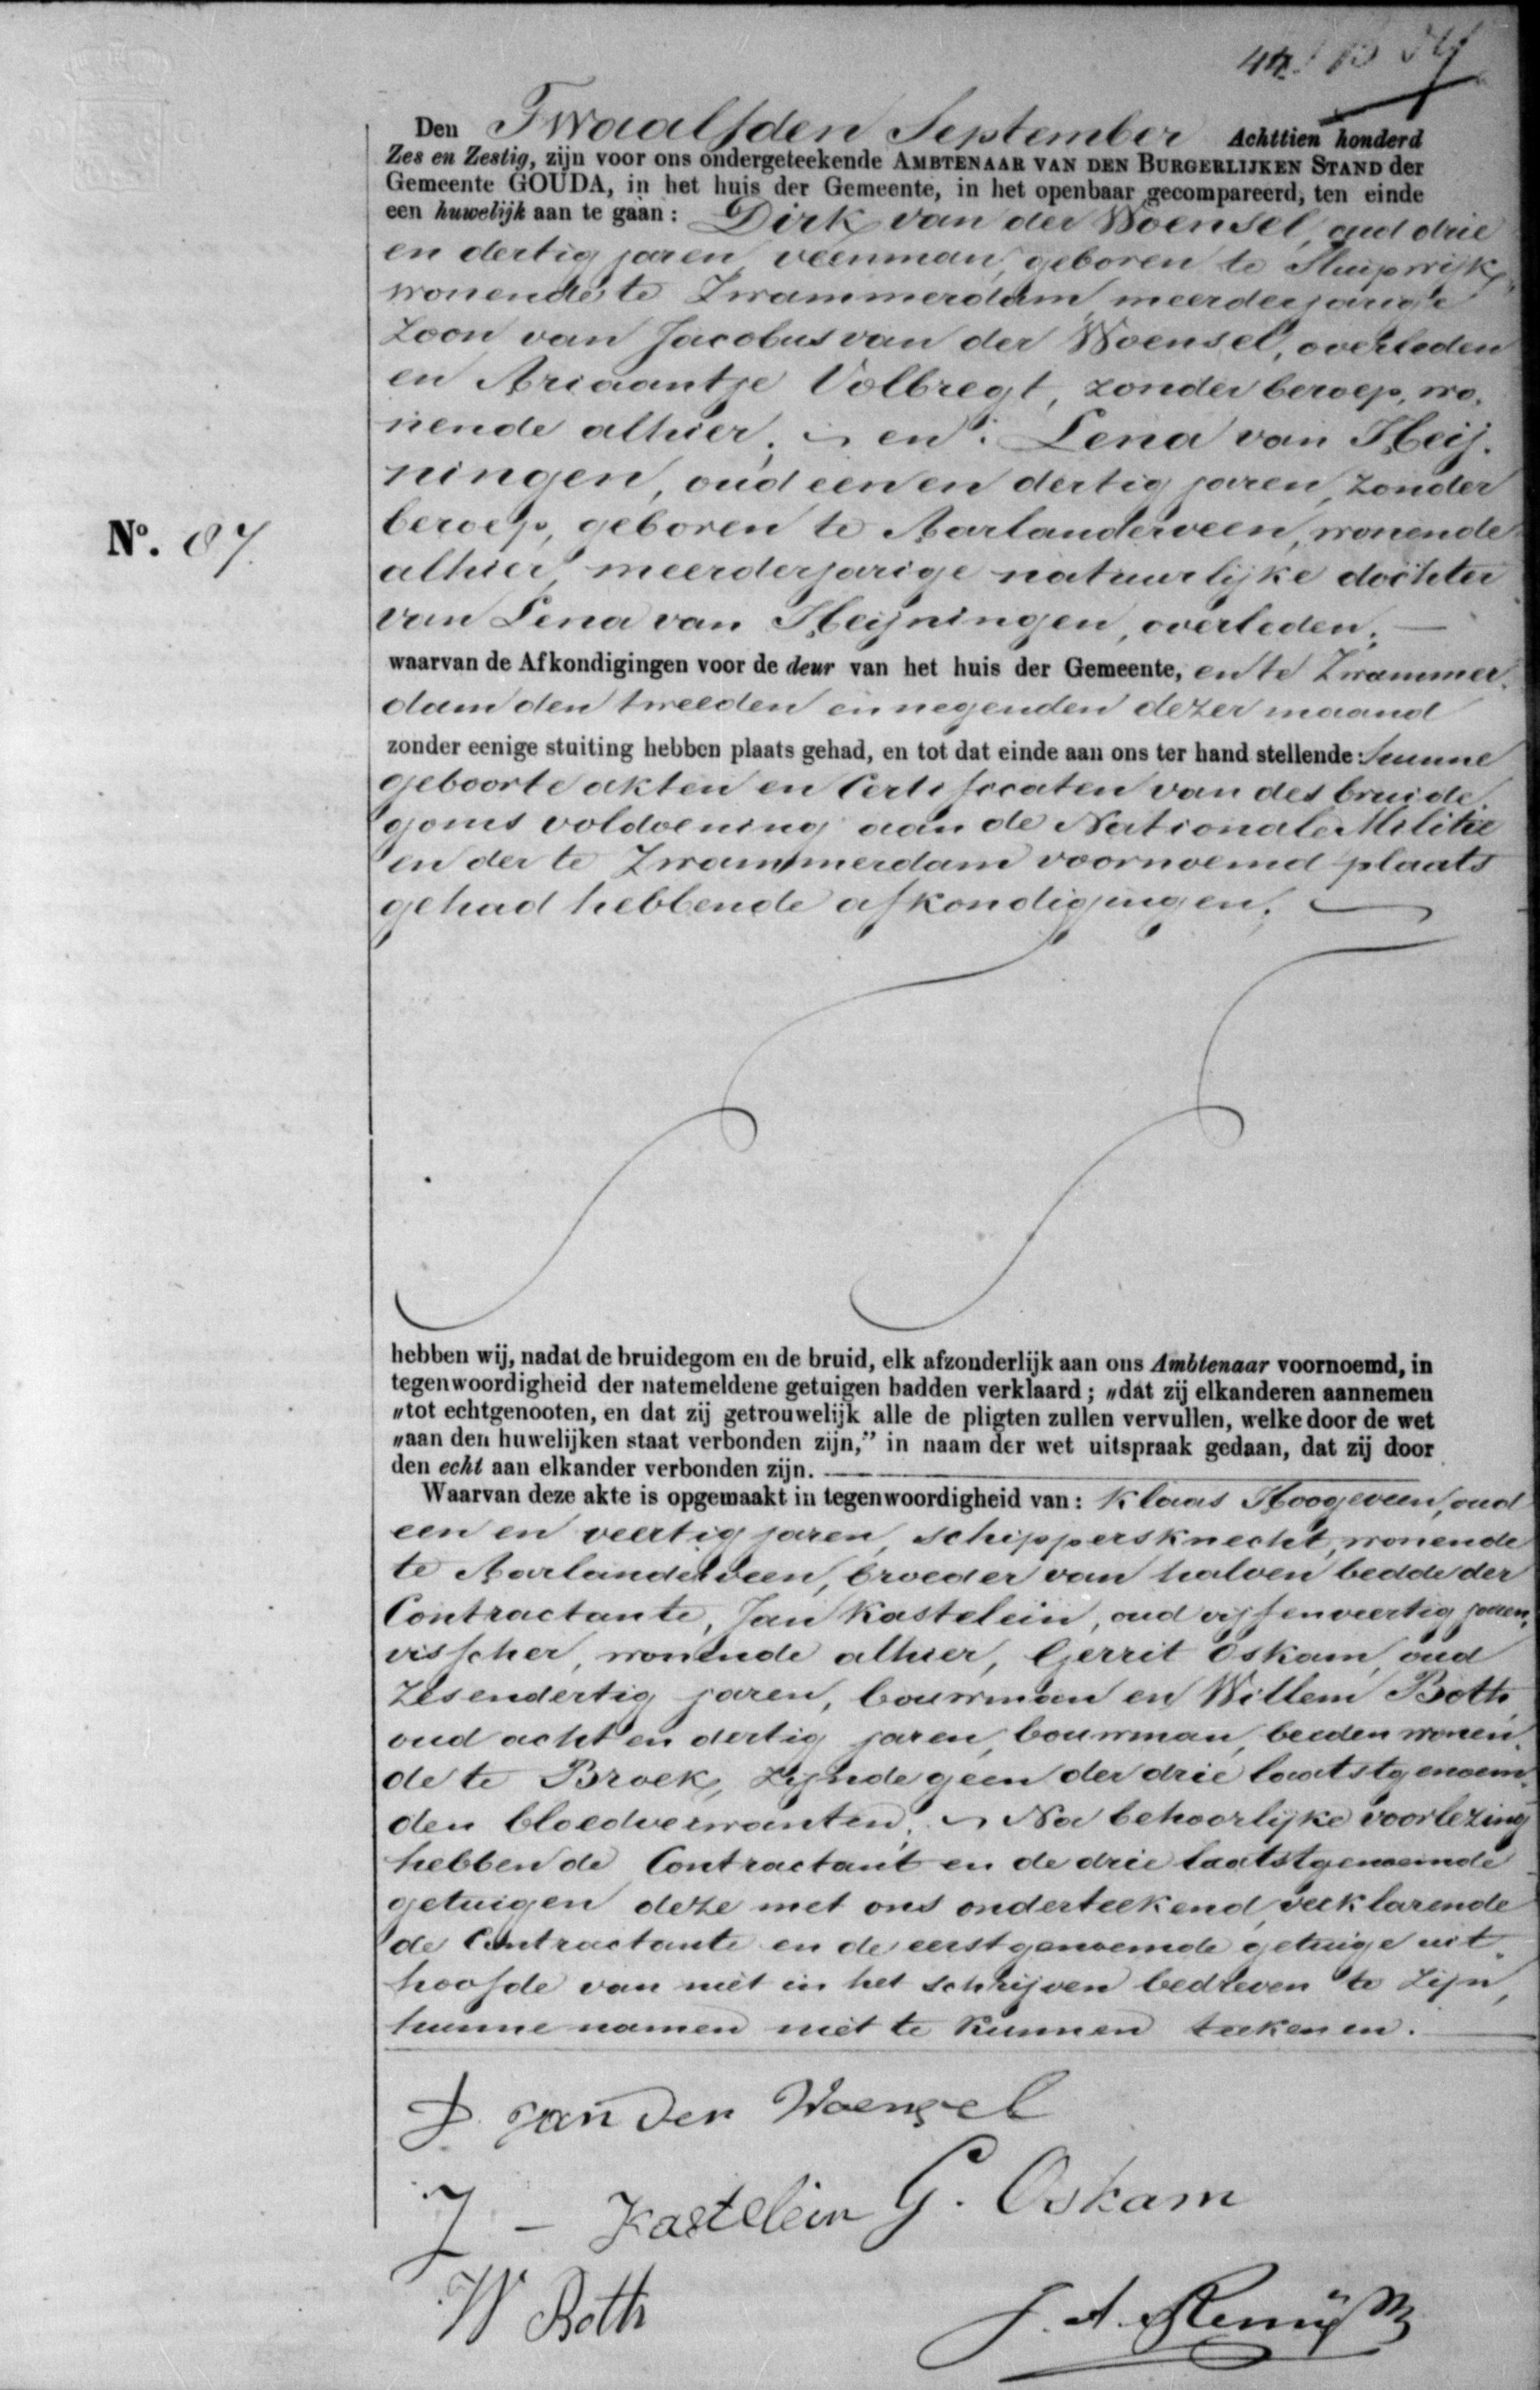 Den Twaalfden September Achttien honderd
Zes en Zestig, zijn voor ons ondergeteekende AMBTENAAR VAN DEN BURGERLIJKEN STAND der
Gemeente GOUDA, in het huis der Gemeente, in het openbaar gecompareerd, ten einde
een huwelijk aan te gaan: Dirk van der Woensel, oud drie
en dertig jaren, veenman, geboren te Sluipwijk,
wonende te Zwammerdam, meerderjarige
zoon van Jacobus van der Woensel, overleden
en Ariaantje Volbregt, zonder beroep, wo.
nende alhier; en: Lena van Heij.
ningen, oud een en dertig jaren, zonder
beroep, geboren te Aarlanderveen, wonende
alhier, meerderjarige natuurlijke dochter
van Lena van Heijningen, overleden;
waarvan de Afkondigingen voor de deur van het huis der Gemeente, en te Zwammer.
dam den tweeden en negenden dezer maand
zonder eenige stuiting hebben plaats gehad, en tot dat einde aan ons ter hand stellende: hunne
geboorte akten en Certificaten van des bruide.
goms voldoening aan de Nationale Militie
en der te Zwammerdam voornoemd plaats
gehad hebbende afkondigingen;
No. 87.
hebben wij, nadat de bruidegom en de bruid, elk afzonderlijk aan ons Ambtenaar voornoemd, in
tegenwoordigheid der natemeldene getuigen hadden verklaard; „dat zij elkanderen aannemen
„tot echtgenooten, en dat zij getrouwelijk alle de pligten zullen vervullen, welke door de wet
„aan den huwelijken staat verbonden zijn,” in naam der wet uitspraak gedaan, dat zij door
den echt aan elkander verbonden zijn.
Waarvan deze akte is opgemaakt in tegenwoordigheid van: Klaas Hoogeveen, oud
een en veertig jaren, schippersknecht, wonende
te Aarlanderveen, broeder van halven bedde der
Contractante, Jan Kastelein, oud vijfenveertig jaren,
visscher, wonende alhier, Gerrit Oskam, oud
zesendertig jaren, bouwman en Willem Both,
oud acht en dertig jaren, bouwman, beiden wonen.
de te Broek, zijnde geen der drie laatstgenoem.
den bloedverwanten; Na behoorlijke voorlezing
hebben de Contractant en de drie laatstgenoemde
getuigen deze met ons onderteekend, verklarende
de Contractante en de eerstgenoemde getuige uit.
hoofde van niet in het schrijven bedreven te zijn,
hunne namen niet te kunnen teekenen.
D. van der Woensel
J - Kastelein G. Oskam
W Both